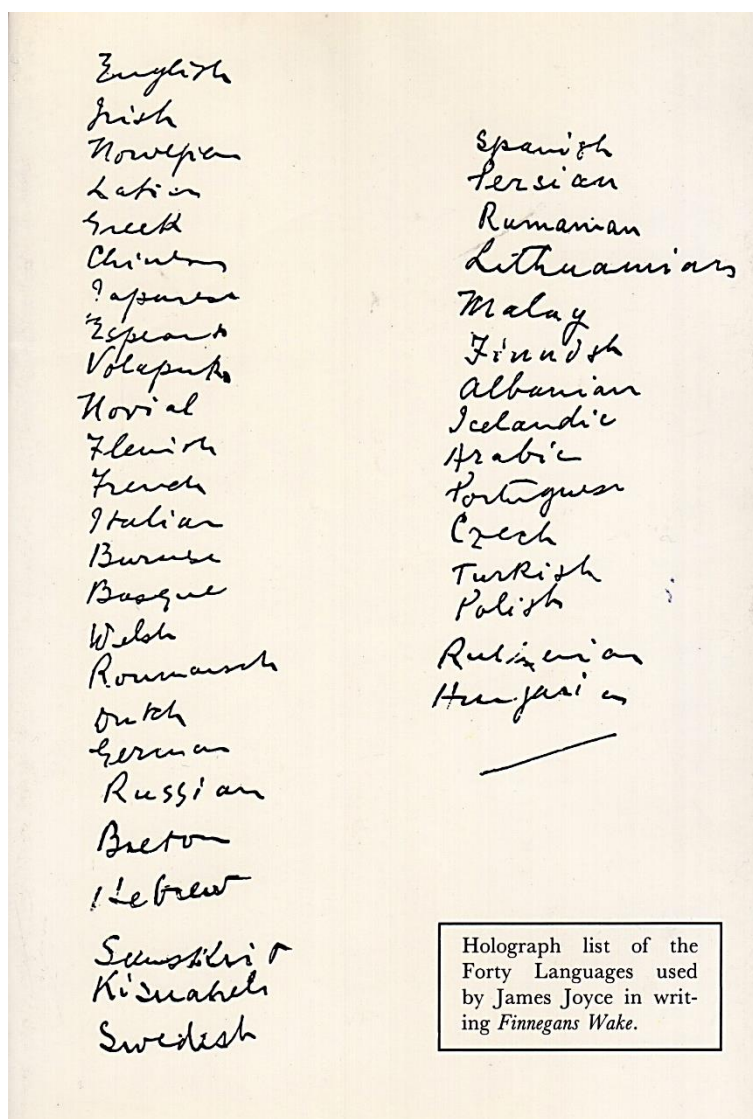 English
Irish
Norwegian
Latin
Greek
Chinese
Japanese
Esperanto
Volapuk
Novial
Flemish
French
Italian
Burmese
Basque
Welsh
Roumansch
Dutch
German
Russian
Breton
Hebrew
Sanskrit
Kisuaheli
Swedish
Spanish
Persian
Rumanian
Lithuanian
Malay
Finnish
Albanian
Icelandic
Arabic
Portuguese
Czech
Turkish
Polish
Ruthenian
Hungarian
Holograph list of the
Forty Languages used
by James Joyce in writ-
ing Finnegans Wake.